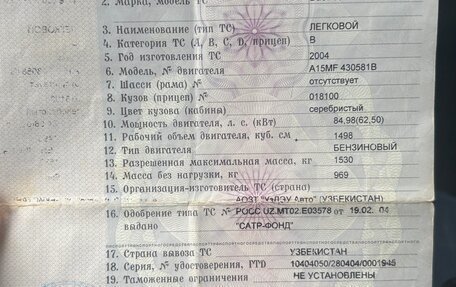 2. Марка, модель ТС
3. Наименование (тип ТС) ЛЕГКОВОЙ
4. Категория ТС (А, В, С, D, прицеп) B
5. Год изготовления ТС 2004
6. Модель, № двигателя A15MF 430581B
7. Шасси (рама) № отсутствует
8. Кузов (прицеп) № 018100
9. Цвет кузова (кабины) серебристый
10. Мощность двигателя, л. с. (кВт) 84,98(62,50)
11. Рабочий объем двигателя, куб. см 1498
12. Тип двигателя БЕНЗИНОВЫЙ
13. Разрешенная максимальная масса, кг 1530
14. Масса без нагрузки, кг 969
15. Организация-изготовитель ТС (страна)
АОЗТ "УзДЭУ Авто" (УЗБЕКИСТАН)
16. Одобрение типа ТС № РОСС UZ.MT02.E03578 от 19.02. 04
выдано "САТР-ФОНД"
17. Страна вывоза ТС УЗБЕКИСТАН
18. Серия, № удостоверения, ГТD 10404050/280404/0001945
19. Таможенные ограничения НЕ УСТАНОВЛЕНЫ